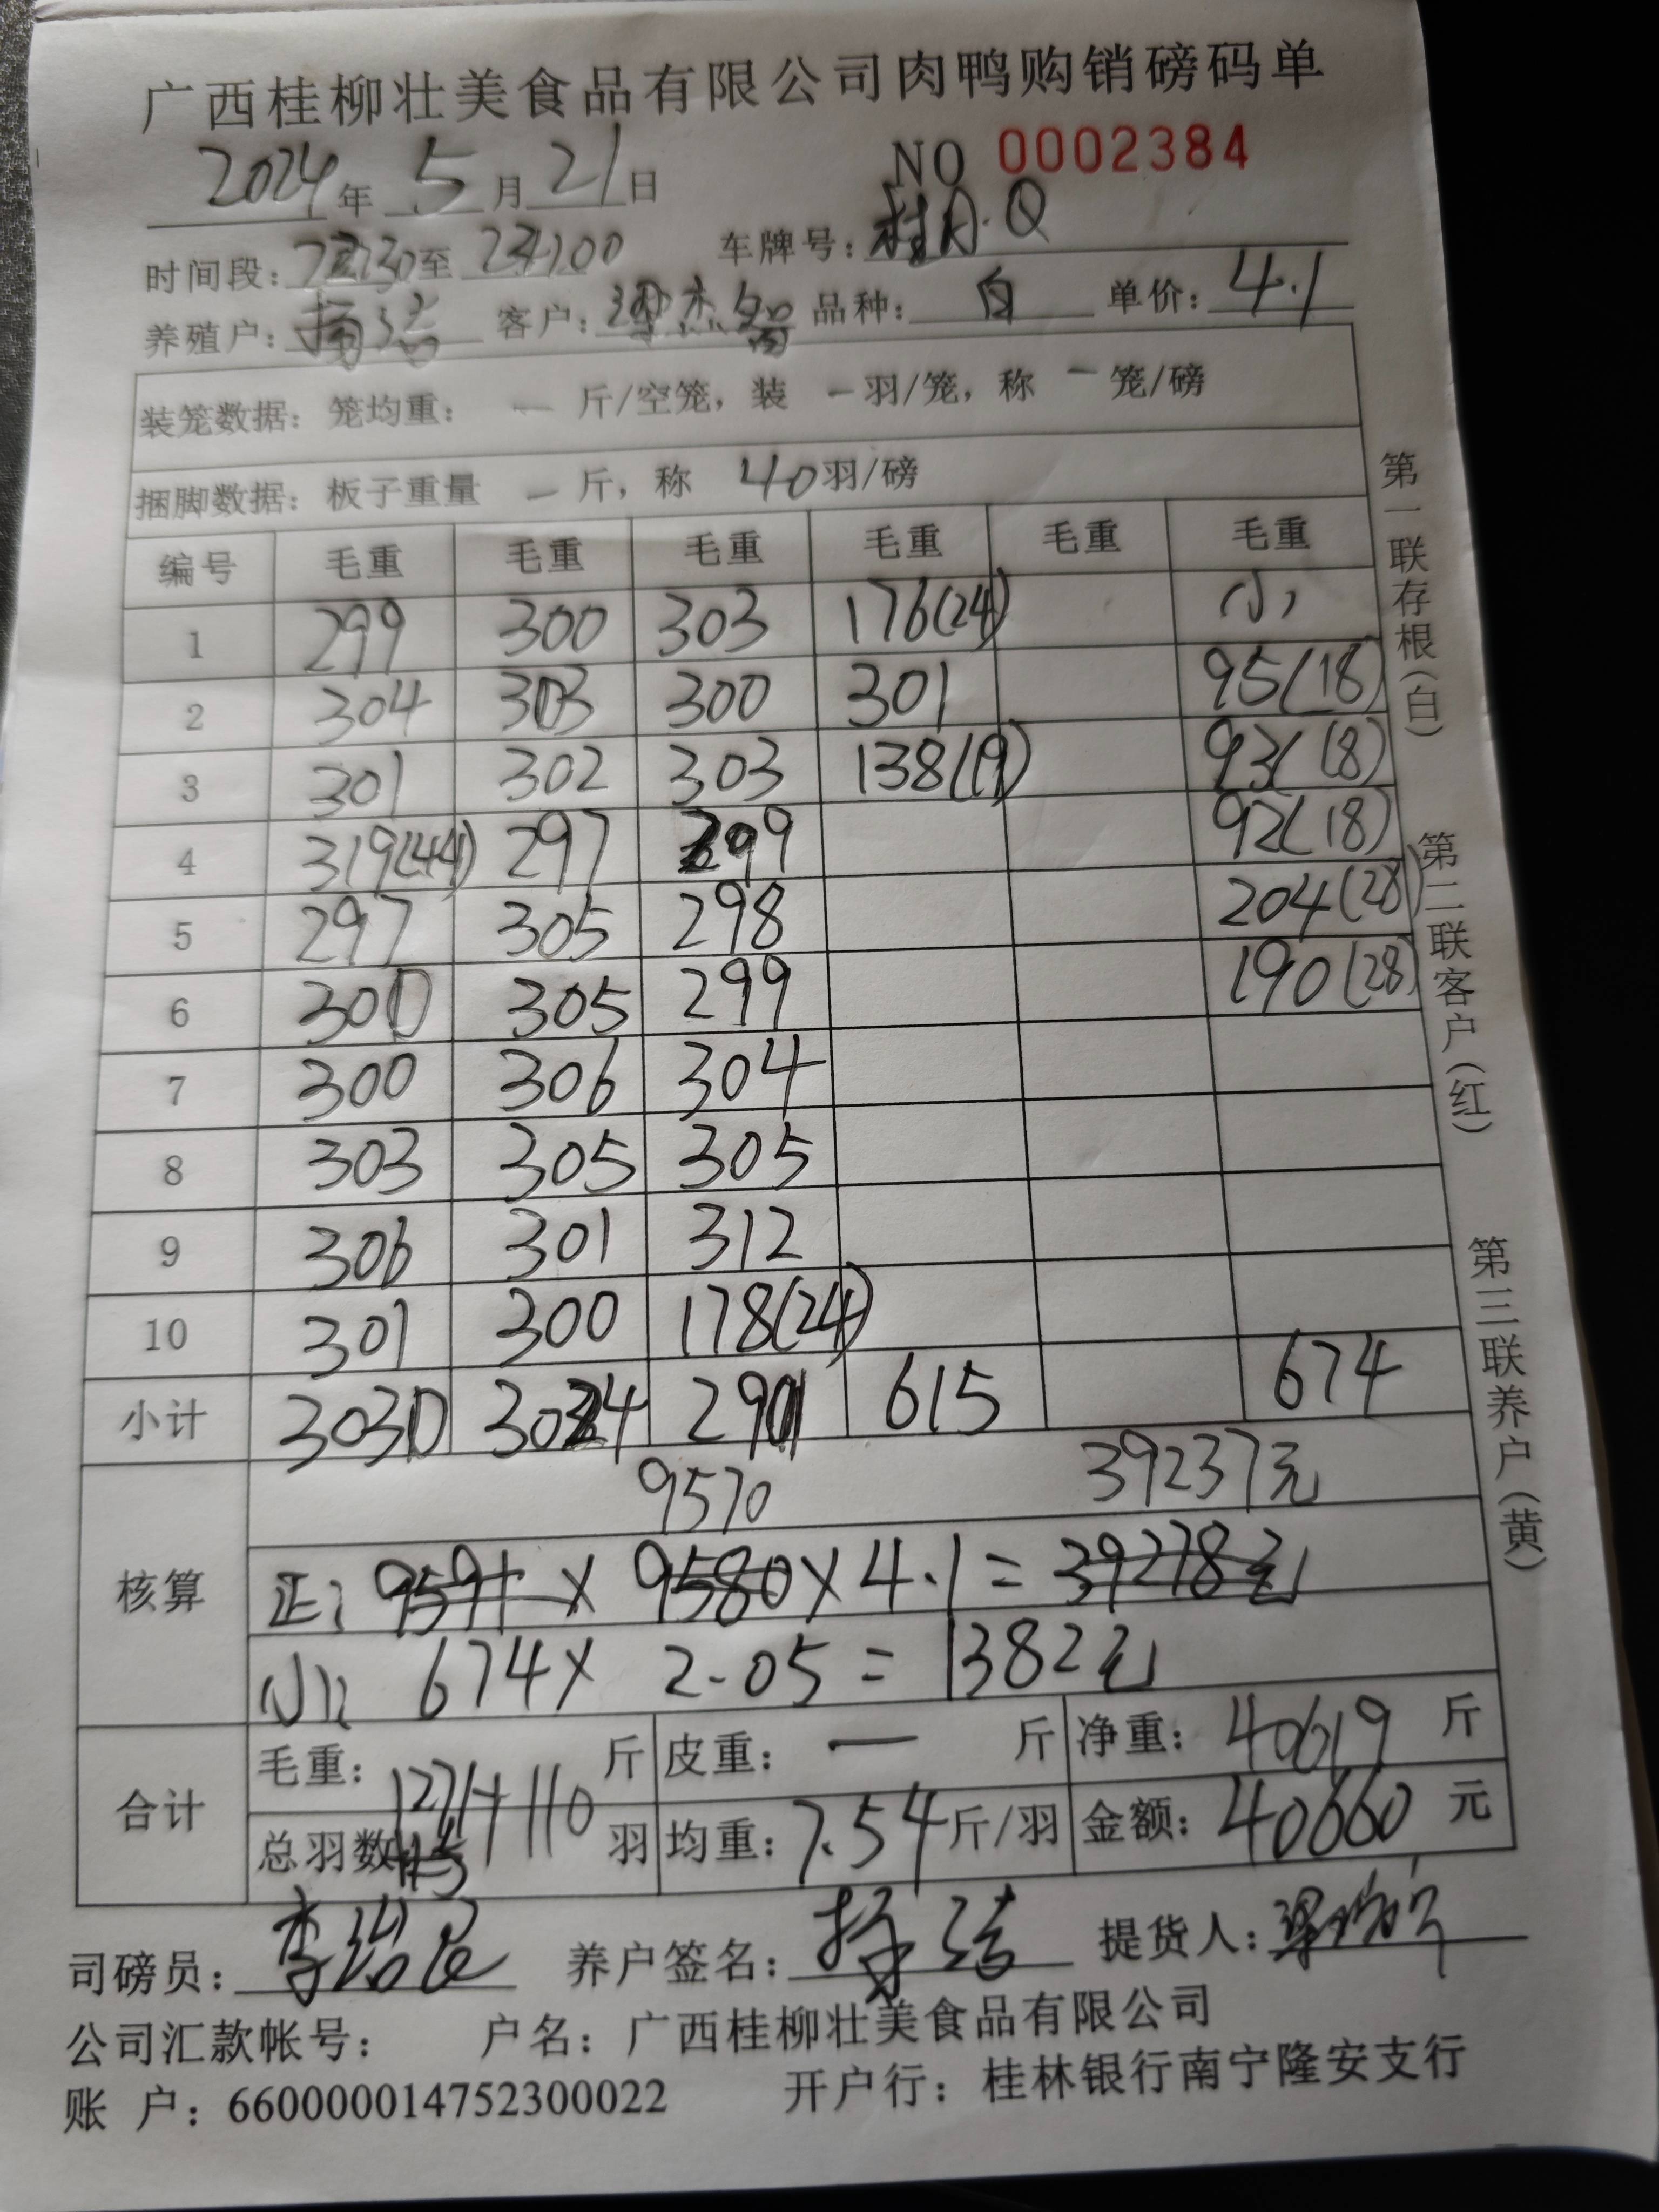 广西桂柳壮美食品有限公司肉鸭购销磅码单
2024年 5月21日 NO 0002384
时间段: 至 车牌号:桂A·Q
养殖户: 客户: 品种: 白 单价:4.1
装笼数据:笼均重: — 斤/空笼,装 — 羽/笼,称 — 笼/磅
捆脚数据:板子重量 — 斤,称 40羽/磅
编号 毛重 毛重 毛重 毛重 毛重 毛重
1 299 300 303 176(24) 小
2 304 303 300 301 95(18)
3 301 302 303 138(19) 93(18)
4 319(44) 297 299 92(18)
5 297 305 298 204(28)
6 300 305 299 190(28)
7 300 306 304
8 303 305 305
9 306 301 312
10 301 300 178(24)
小计 3030 3024 2901 615 674
9570 39237元
核算 正: × 9580×4.1=39278元
小: 674× 2.05=1382元
合计 毛重: 斤 皮重:— 斤 净重:40619 斤
1271+110
总羽数 羽 均重:7.54斤/羽 金额:40660元
司磅员: 养户签名: 提货人:
公司汇款帐号: 户名:广西桂柳壮美食品有限公司
账 户:660000014752300022 开户行:桂林银行南宁隆安支行
第一联存根(白)
第二联客户(红)
第三联养户(黄)